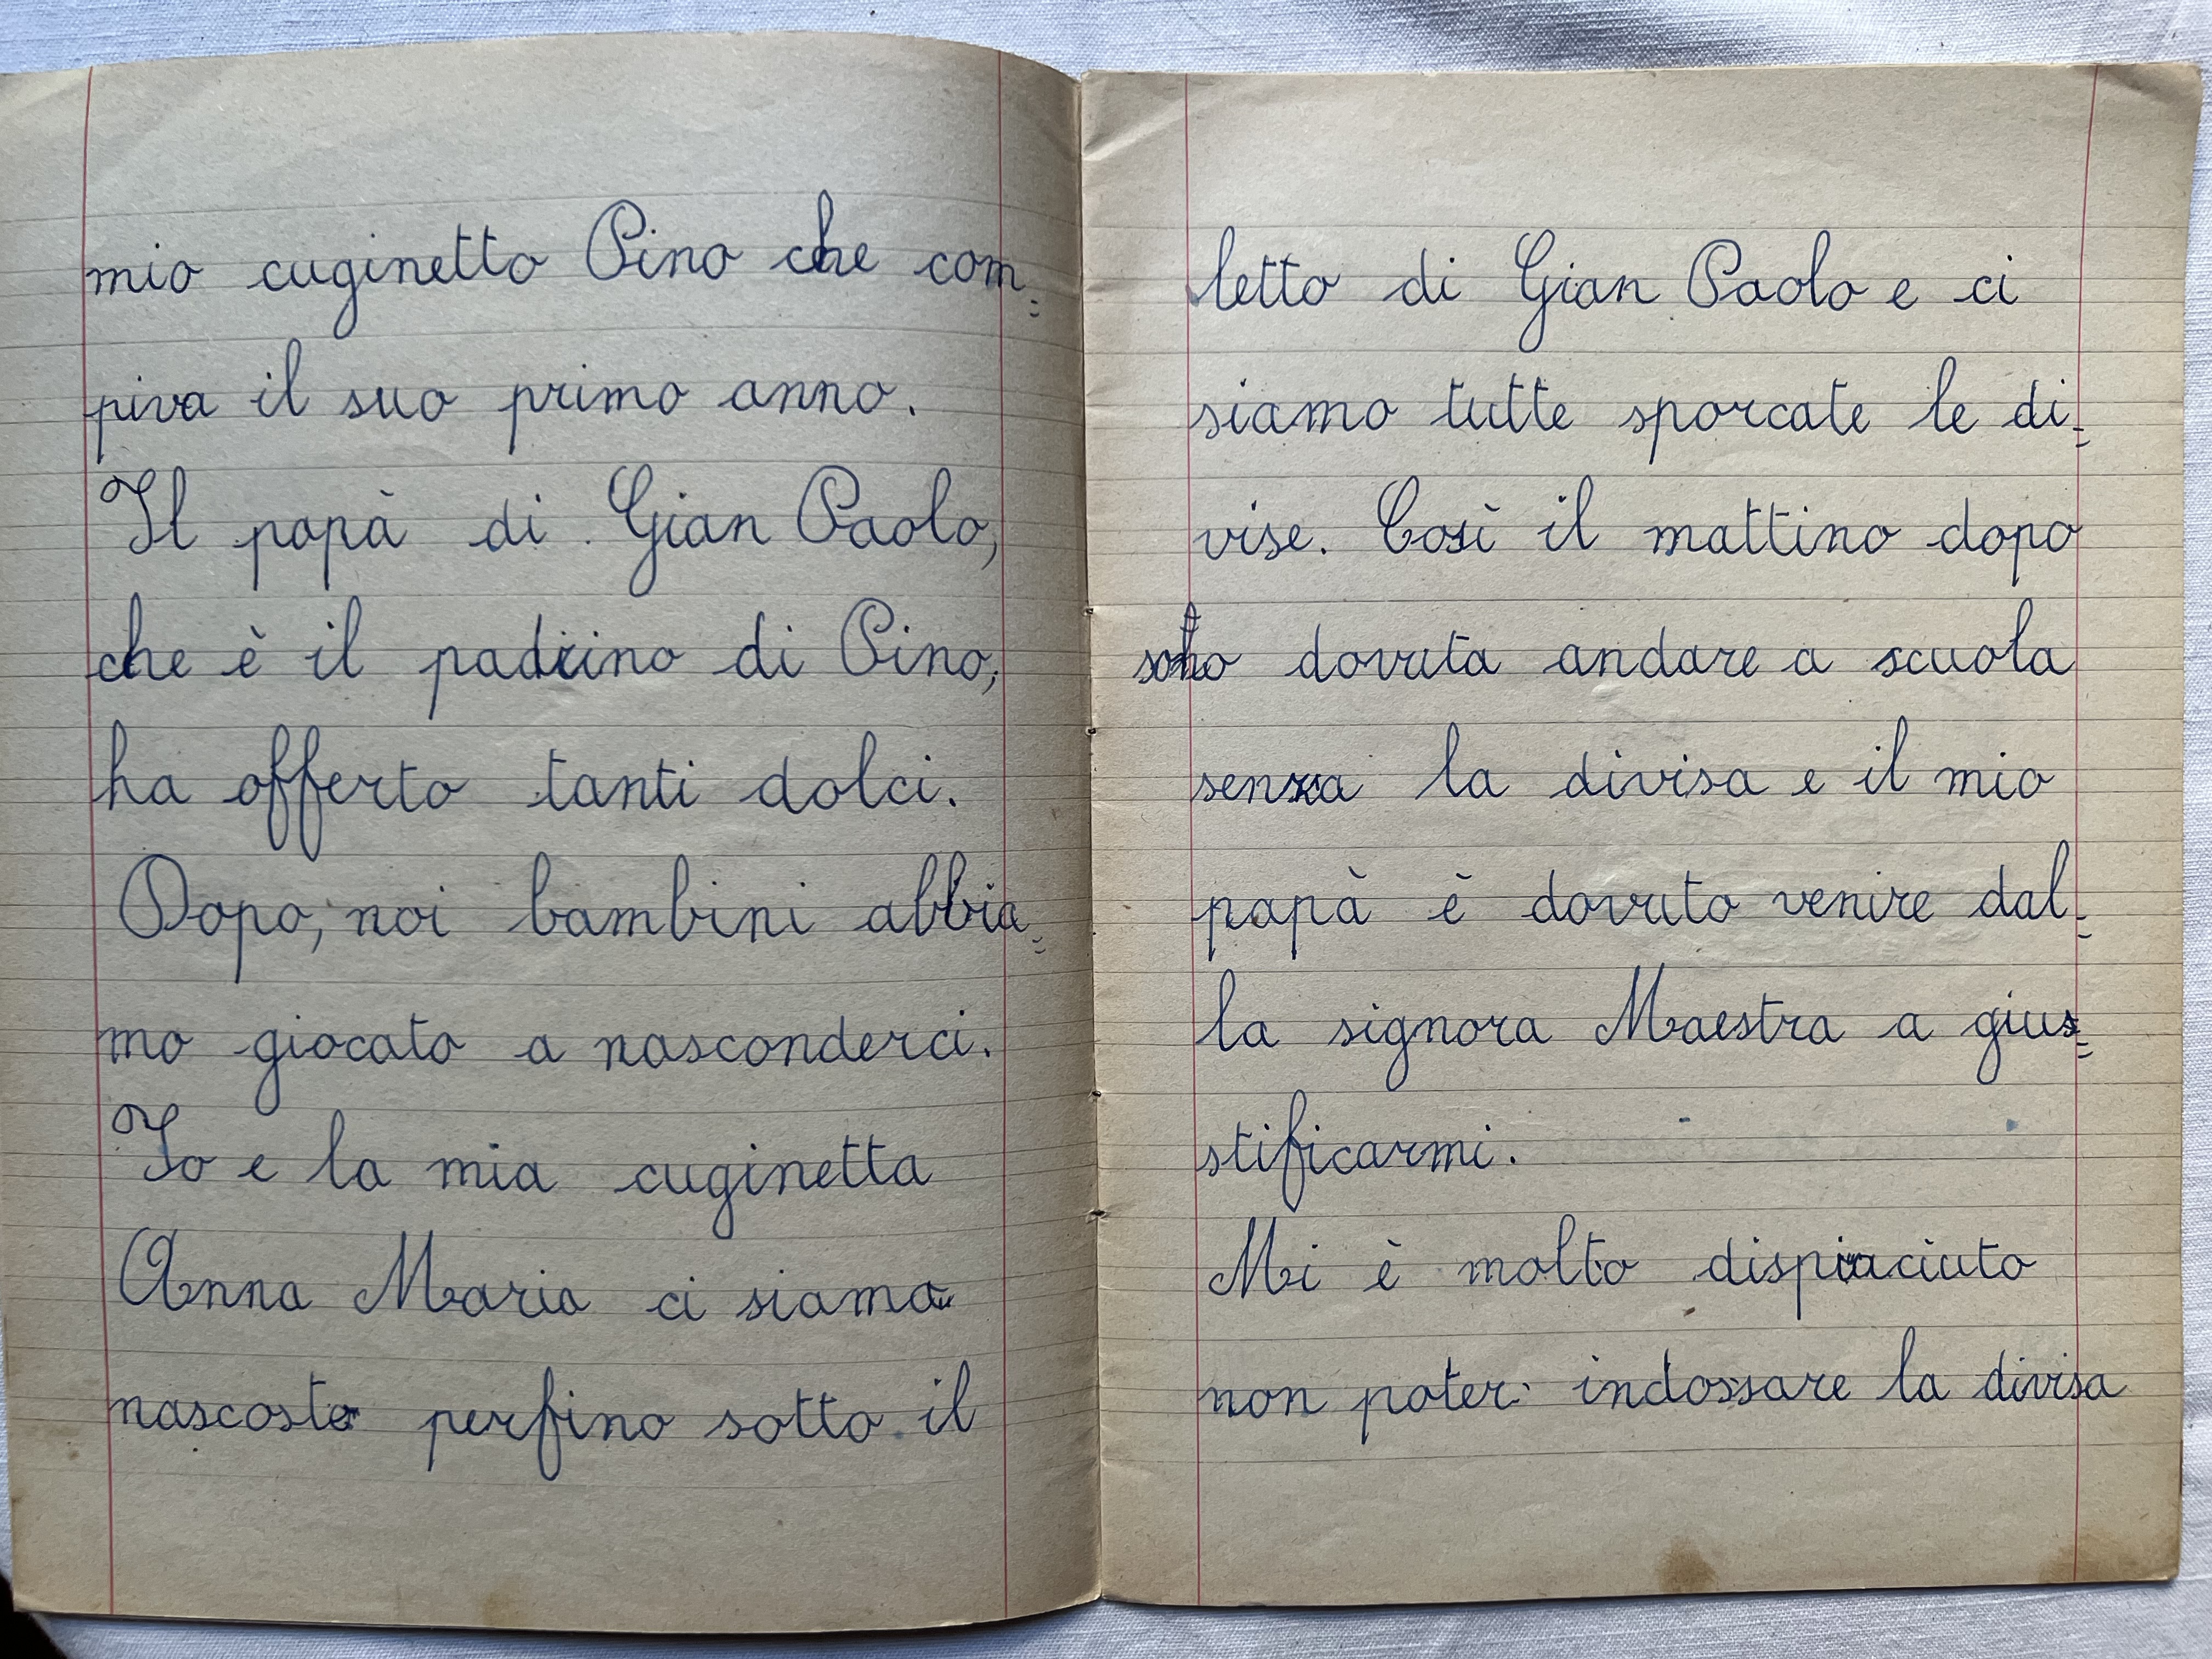 mio cuginetto Pino che com=
piva il suo primo anno.
Il papà di Gian Paolo,
che è il padrino di Pino,
ha offerto tanti dolci.
Dopo, noi bambini abbia=
mo giocato a nasconderci.
Io e la mia cuginetta
Anna Maria ci siamo
nascoste perfino sotto il
letto di Gian Paolo e ci
siamo tutte sporcate le di=
vise. Così il mattino dopo
sono dovuta andare a scuola
senza la divisa e il mio
papà è dovuto venire dal=
la signora Maestra a gius=
stificarmi.
Mi è molto dispiaciuto
non poter indossare la divisa